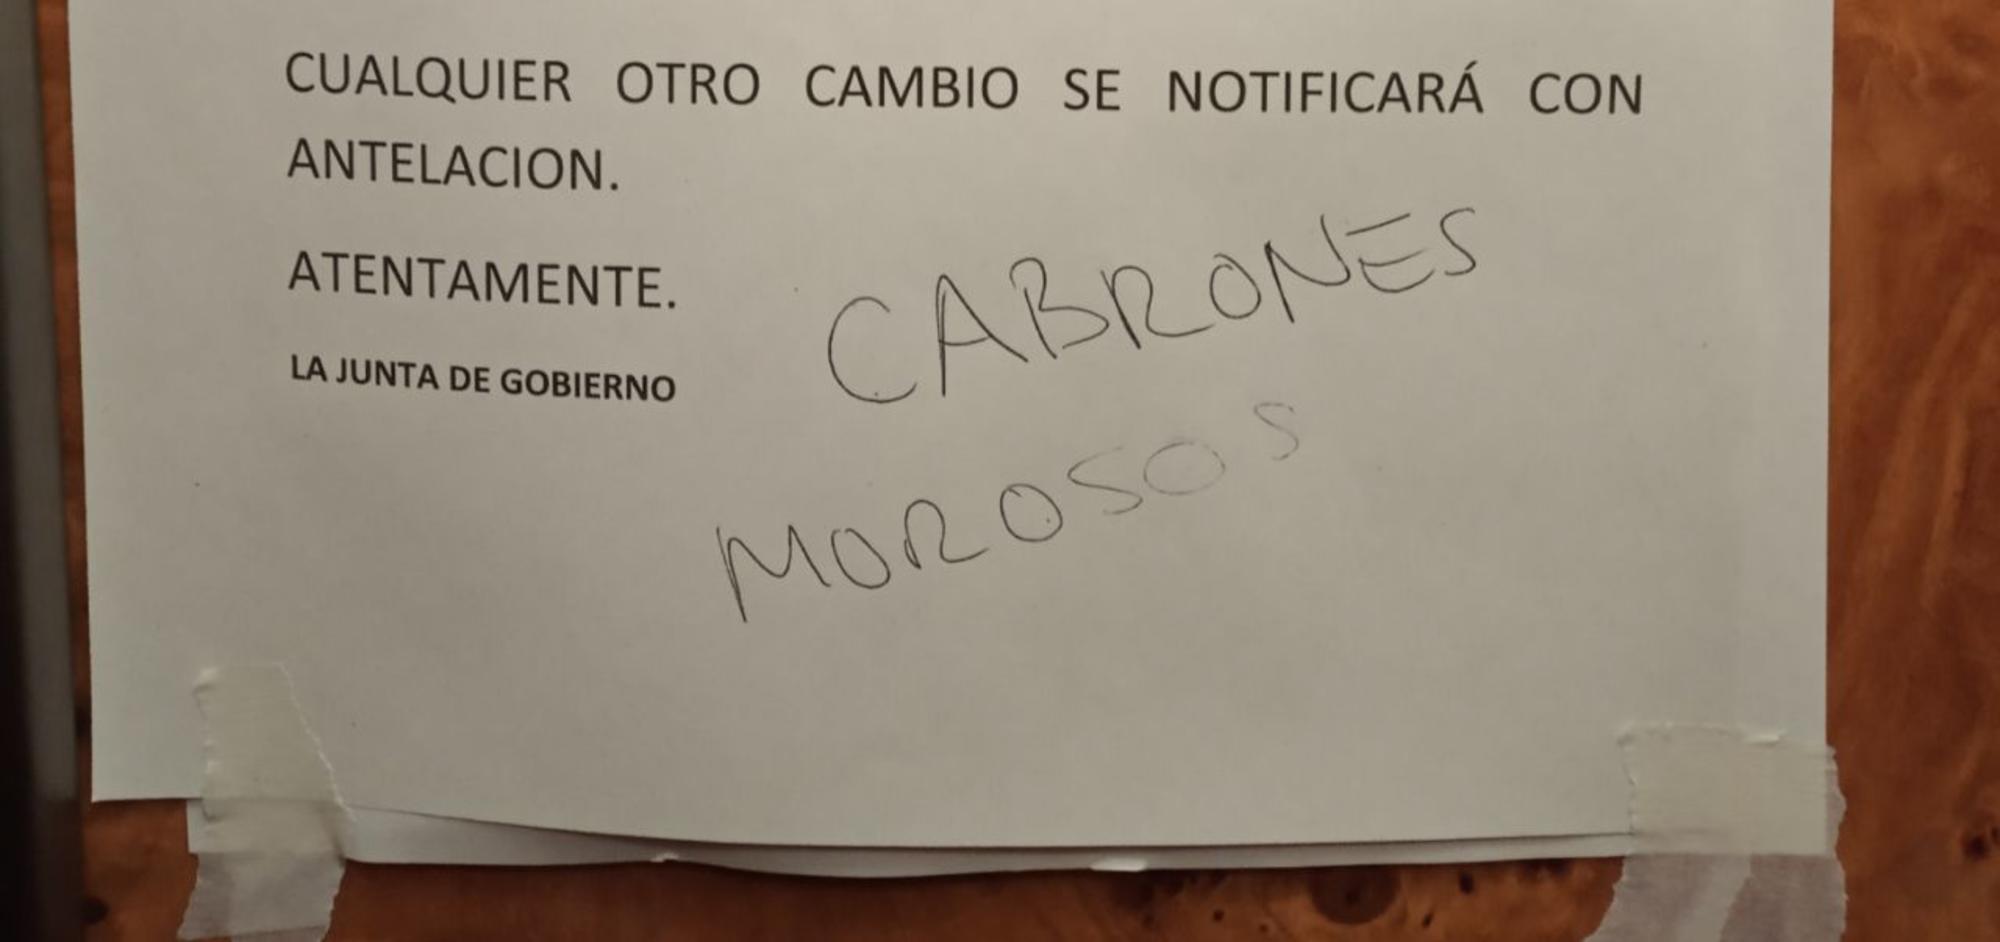 CUALQUIER OTRO CAMBIO SE NOTIFICARÁ CON
ANTELACION.
ATENTAMENTE.
LA JUNTA DE GOBIERNO
CABRONES
MOROSOS